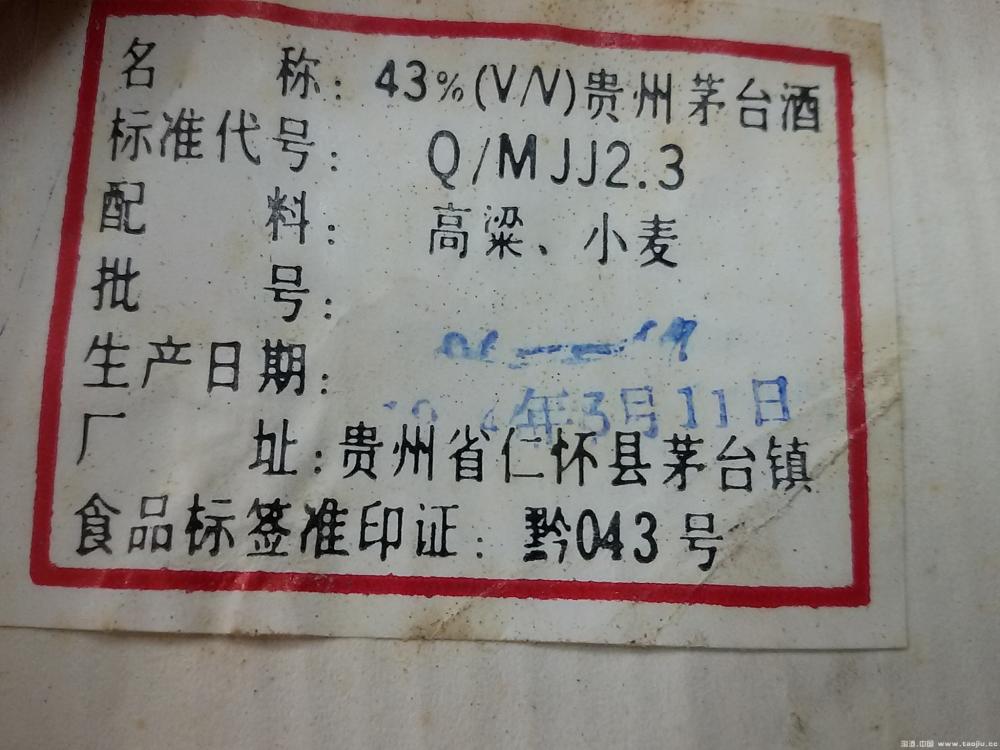 名称：43%(V/V)贵州茅台酒
标准代号：Q/MJJ2.3
配料：高粱、小麦
批号：
生产日期：
年3月11日
厂址：贵州省仁怀县茅台镇
食品标签准印证：黔043号
淘酒.中国 www.taojiu.cc